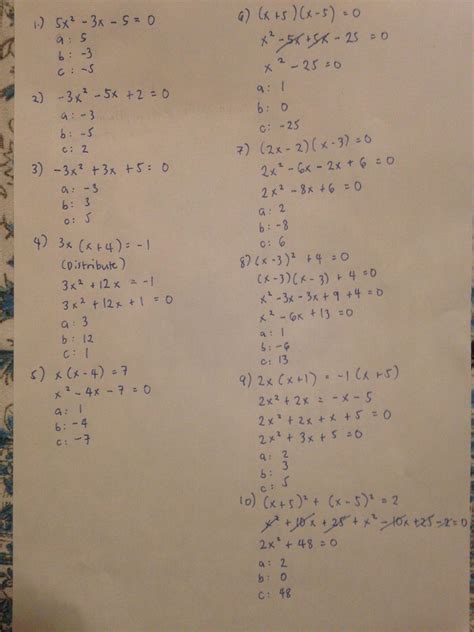 1.) 5x² - 3x - 5 = 0
a: 5
b: -3
c: -5
2) -3x² - 5x + 2 = 0
a: -3
b: -5
c: 2
3) -3x² + 3x + 5 = 0
a: -3
b: 3
c: 5
4) 3x (x+4) = -1
(Distribute)
3x² + 12x = -1
3x² + 12x + 1 = 0
a: 3
b: 12
c: 1
5) x(x-4) = 7
x² - 4x - 7 = 0
a: 1
b: -4
c: -7
6) (x+5)(x-5) = 0
x² - 5x + 5x - 25 = 0
x² - 25 = 0
a: 1
b: 0
c: -25
7) (2x-2)(x-3) = 0
2x² - 6x - 2x + 6 = 0
2x² - 8x + 6 = 0
a: 2
b: -8
c: 6
8) (x-3)² + 4 = 0
(x-3)(x-3) + 4 = 0
x² - 3x - 3x + 9 + 4 = 0
x² - 6x + 13 = 0
a: 1
b: -6
c: 13
9) 2x(x+1) = -1(x+5)
2x² + 2x = -x - 5
2x² + 2x + x + 5 = 0
2x² + 3x + 5 = 0
a: 2
b: 3
c: 5
10) (x+5)² + (x-5)² = 2
x² + 10x + 25 + x² - 10x + 25 - 2 = 0
2x² + 48 = 0
a: 2
b: 0
c: 48